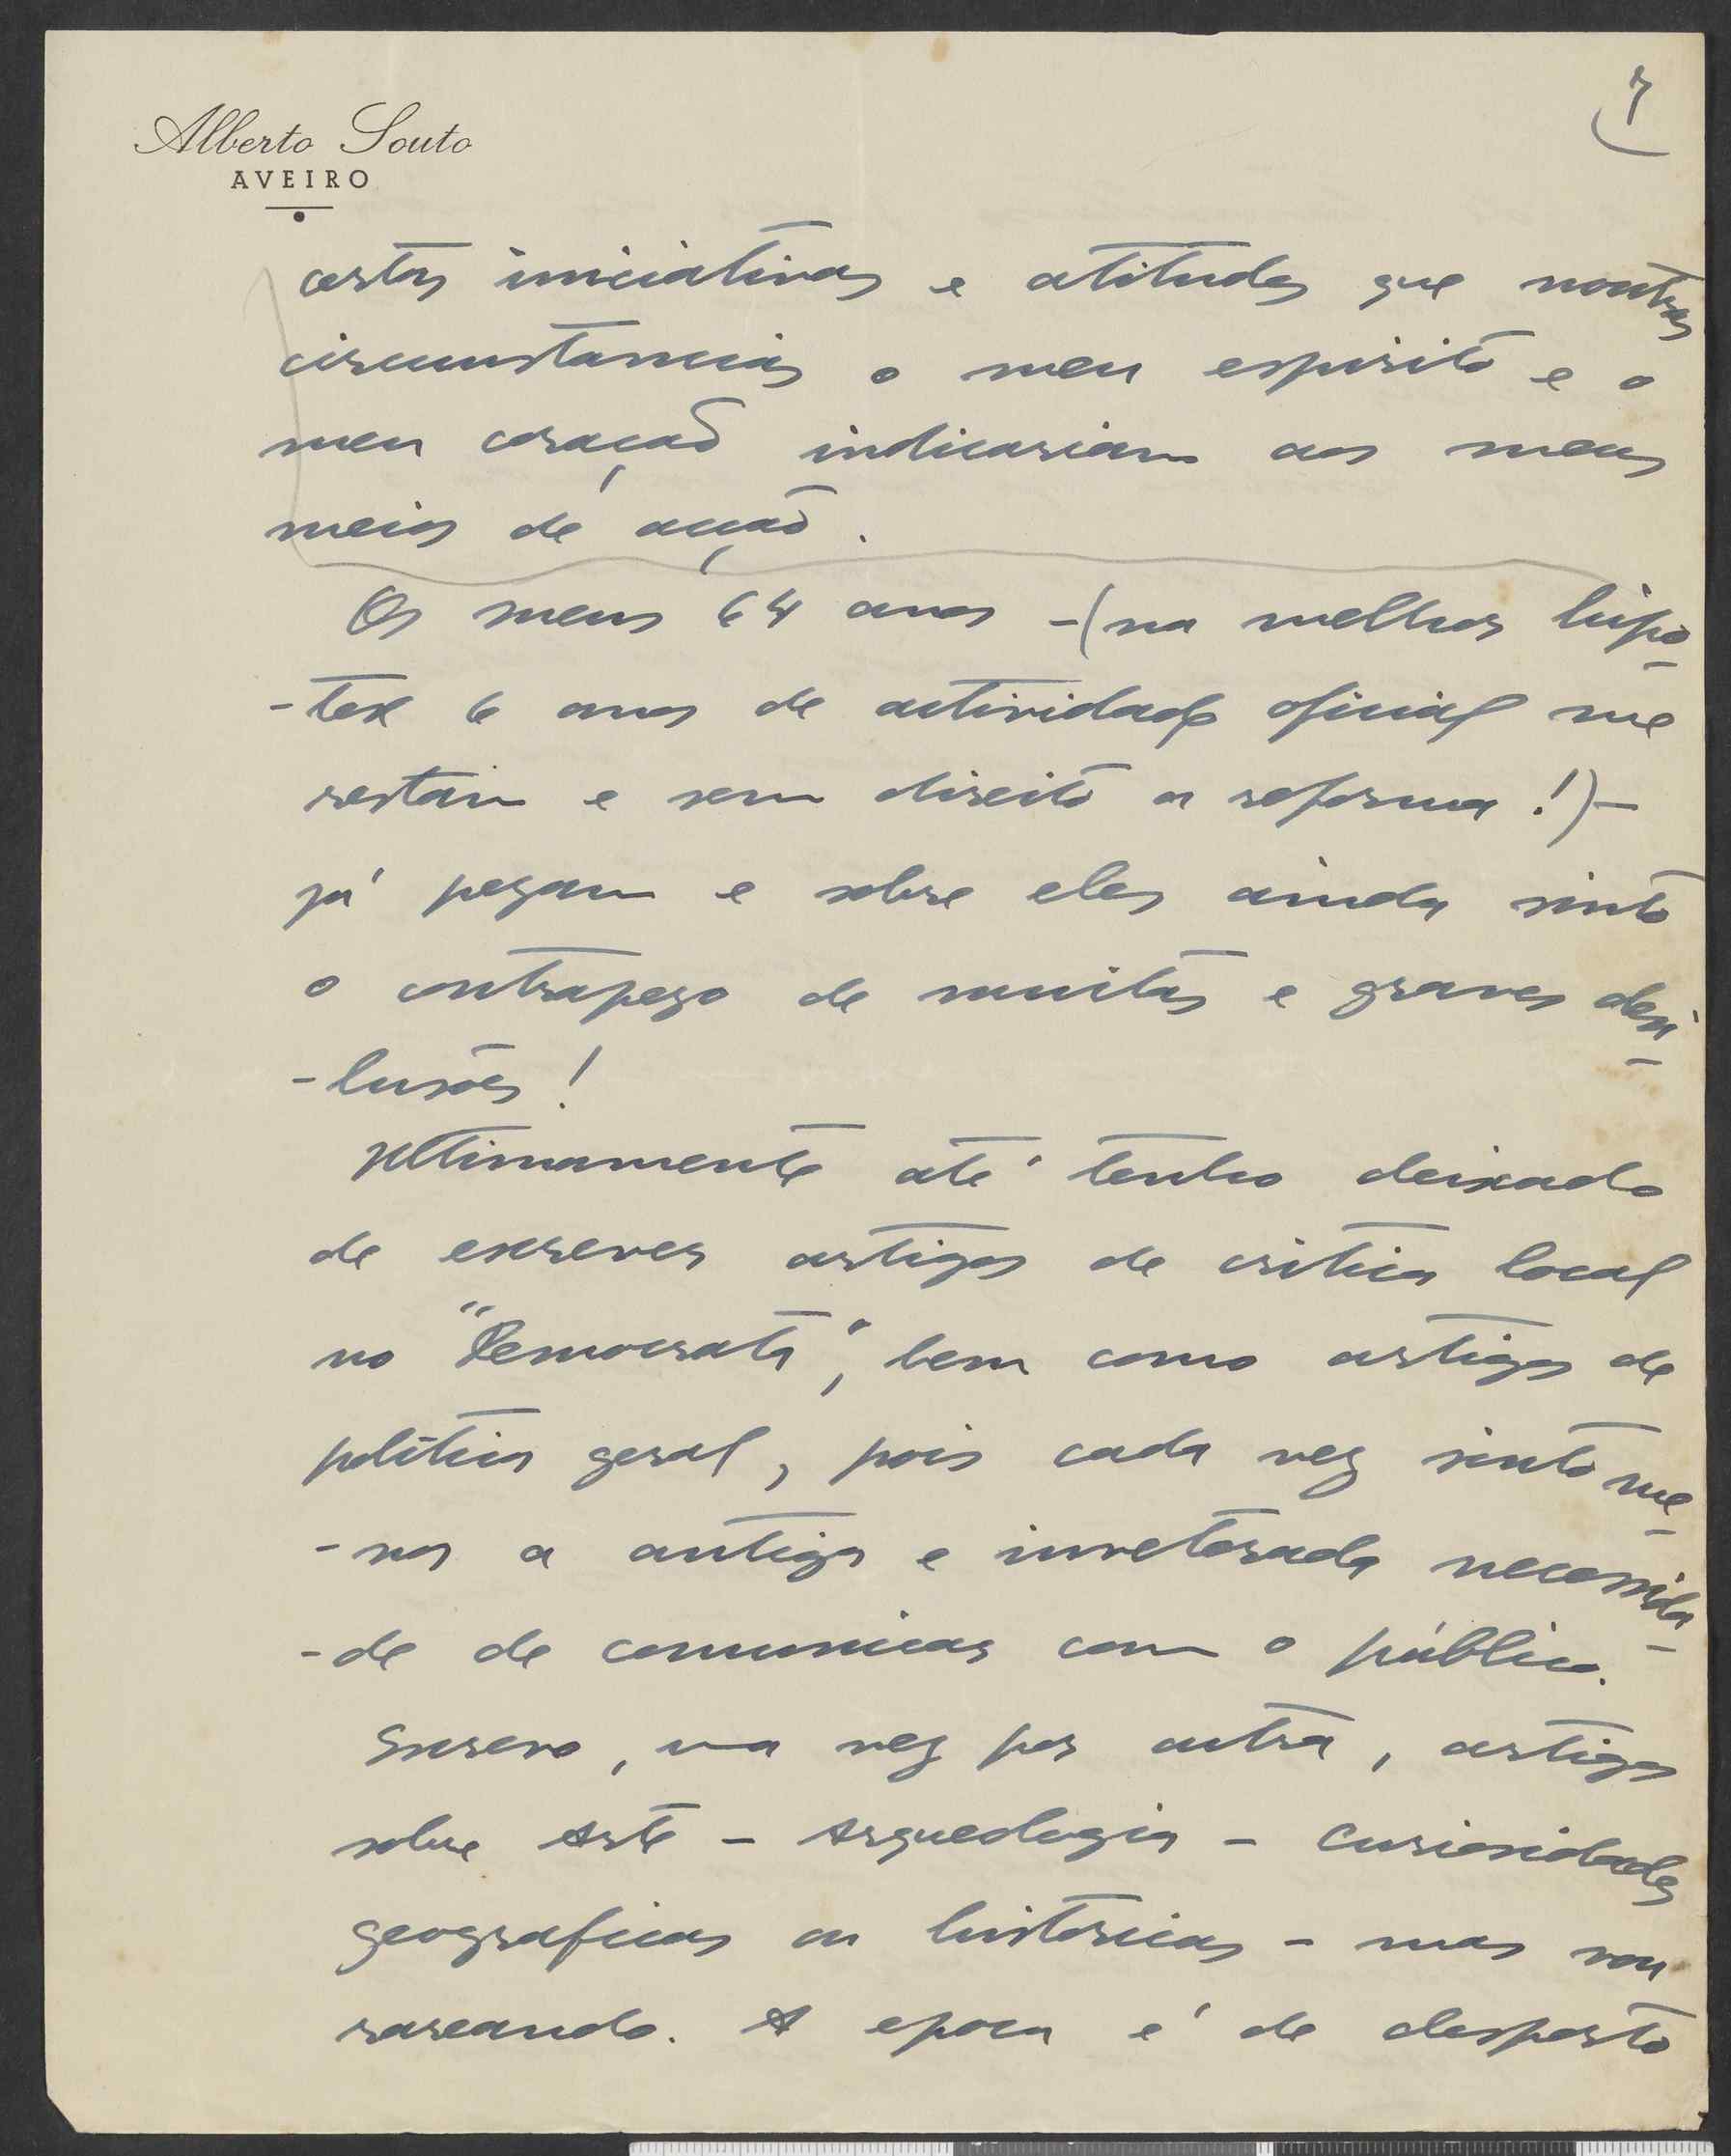 7
Alberto Souto
AVEIRO
certas iniciativas e atitudes que noutras
circumstancias o meu espirito e o
meu coração indicariam aos meus
meios de acção.
Os meus 64 anos -(na melhor hipo-
-tese 6 anos de actividade oficial me
restam e sem direito a reforma!)-
já pezam e sobre eles ainda sinto
o contrapezo de muitas e graves desi-
-lusões!
Ultimamente até tenho deixado
de escrever artigos de critica local
no "Democrata", bem como artigos de
politica geral, pois cada vez sinto me-
-nos a antiga e inveterada necessida-
-de de comunicar com o público.
Escrevo, uma vez por outra, artigos
sobre Arte - Arqueologia - Curiosidades
geograficas ou historicas - mas vou
rareando. A epoca é de desporto